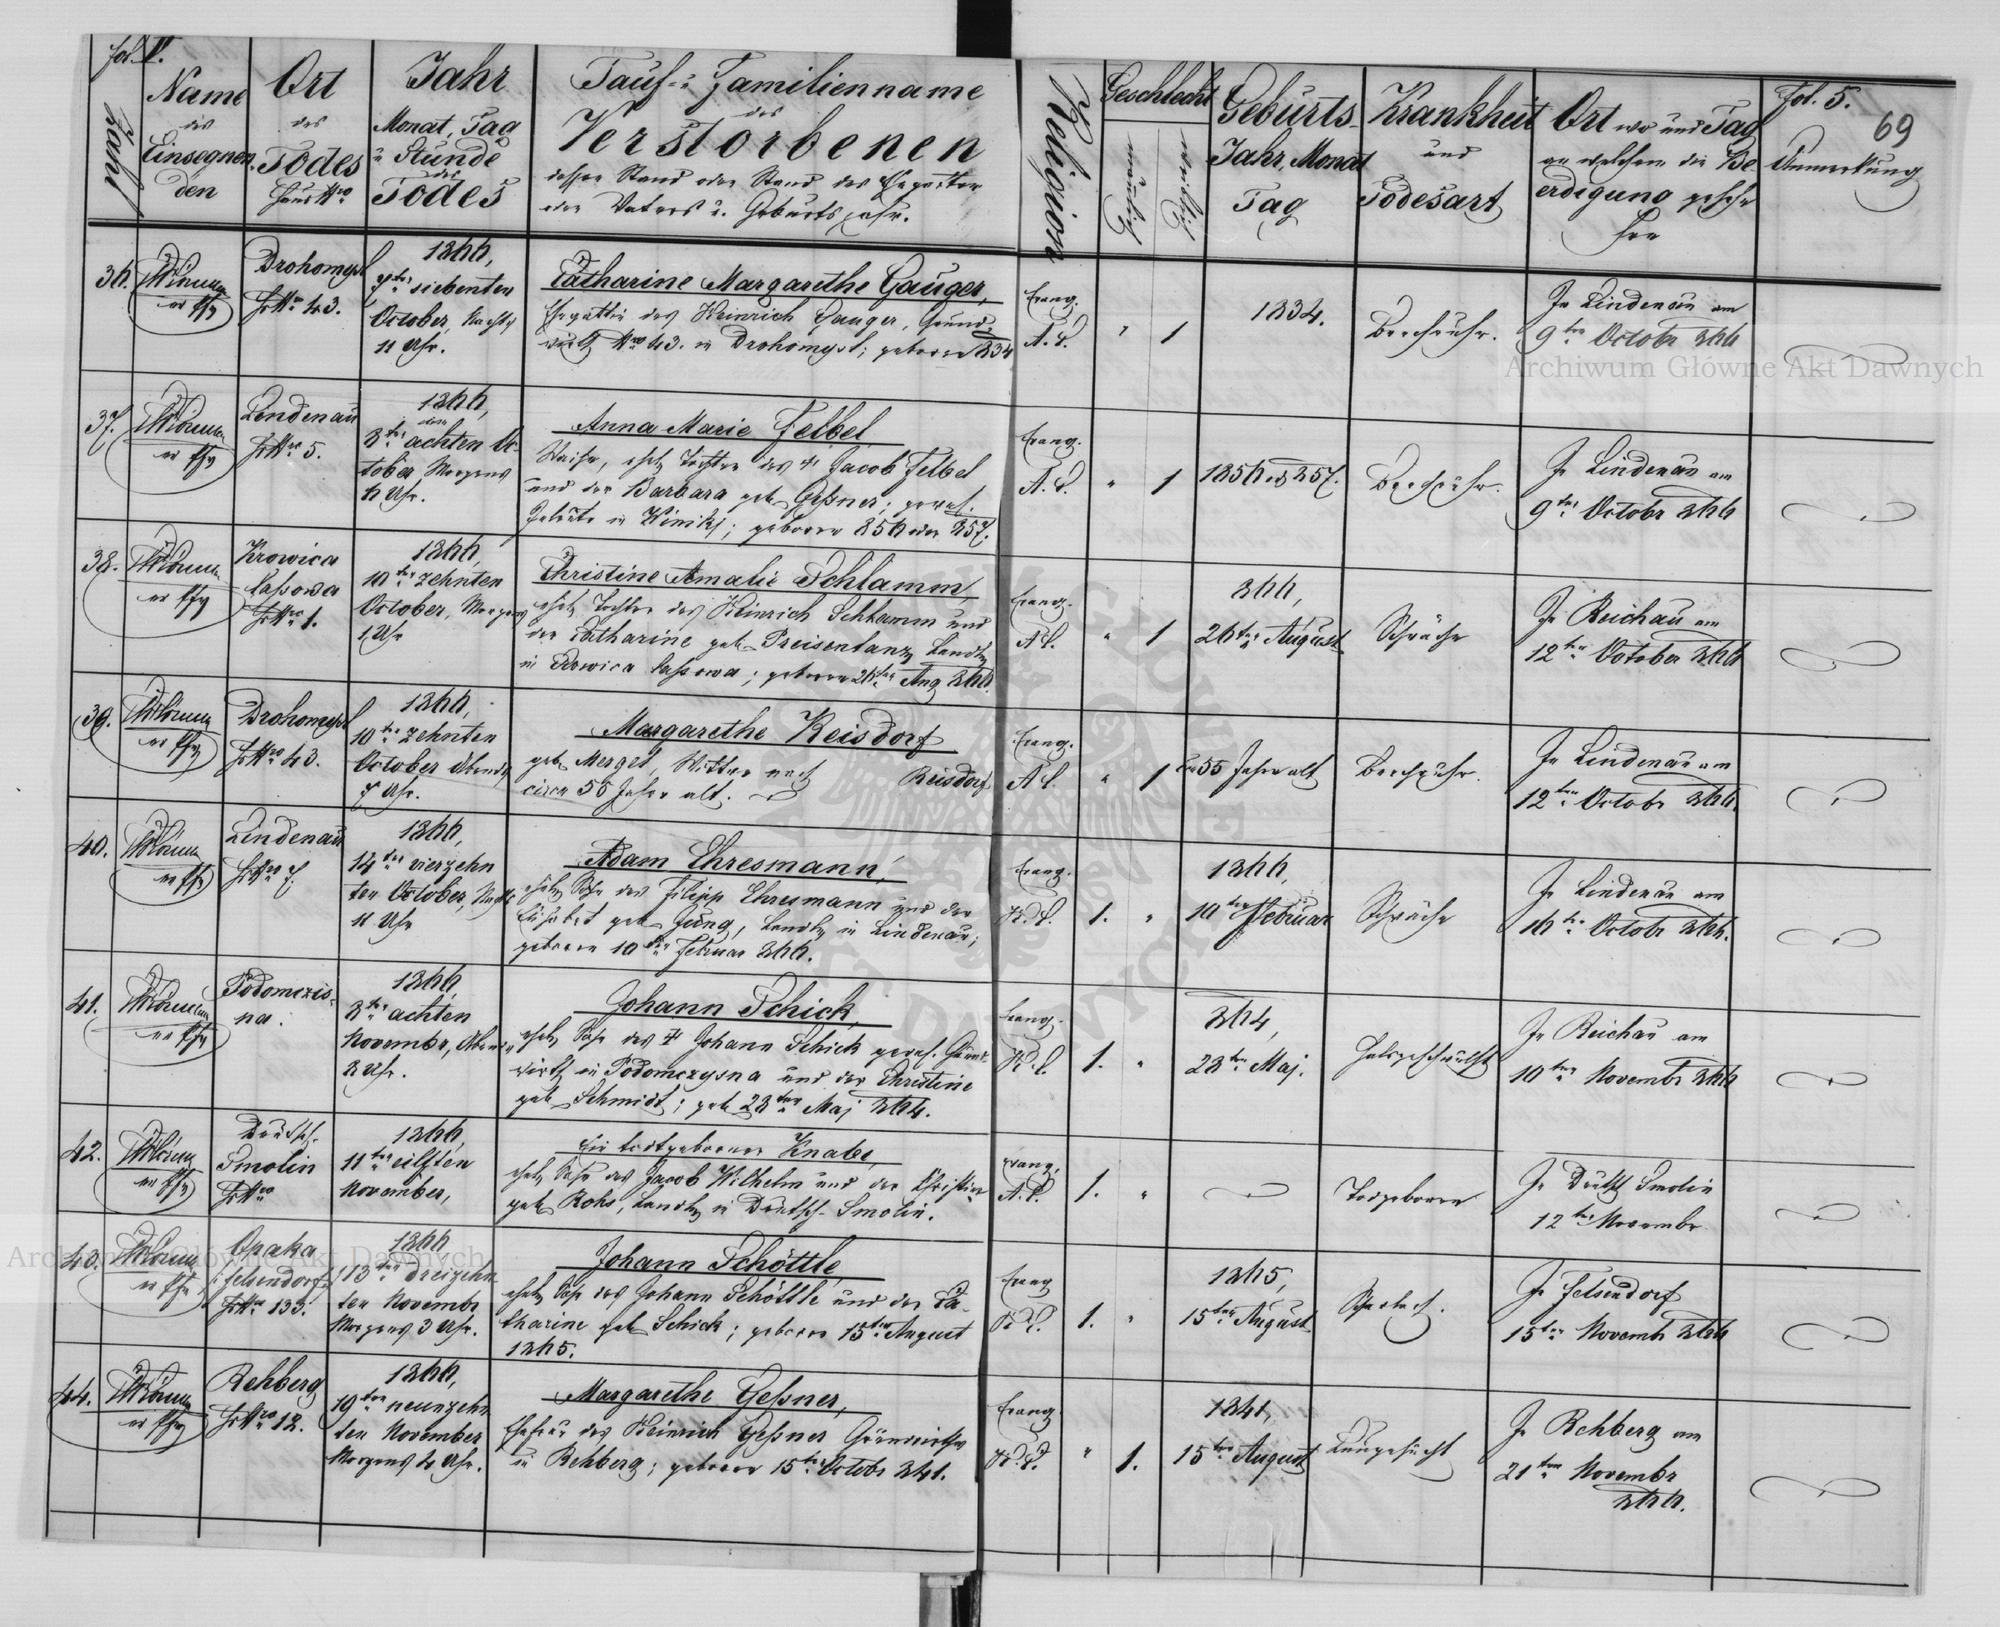 fol. V.
Zahl
Name
des
Einsegnen
den
Ort
des
Todes
Haus Nro
Jahr
Monat, Tag
u Stunde
des
Todes
Tauf- u Familienname
des
Verstorbenen
dessen Stand oder Stand des Ehegatten
oder Vaters u. Geburtsjahr.
Religion
Geschlecht
männlich
weiblich
Geburts-
Jahr, Monat
Tag
Krankheit
und
Todesart
Ort wo und Tag
an welchem die Be-
erdigung gescheh
hen
fol. 5.
69
Anmerkung
36.
Drohomysl
Hs Nro 43.
1866,
7ten siebenten
October, Nachts
11 Uhr.
Catharine Margarethe Gauger,
Ehegattin des Heinrich Gauger, Grund-
wirth Nro 43. in Drohomysl; geboren 834
Evang.
A. C.
" 1
1834.
Brechruhr.
In Lindenau am
9ten October 866
37.
Lindenau
Hs Nro 5.
1866,
den
8ten achten Oc-
tober Morgens
6 Uhr.
Anna Marie Felbel
Waise, ehel. Tochter des † Jacob Felbel
und der Barbara geb. Geßner; gewes.
in ; geboren 856 oder 857.
Evang.
A. C.
" 1
1856 od 857.
Brechruhr.
In Lindenau am
9ten October 866
38.
Krowica
lasowa
Hs Nro 1.
1866,
10ten zehnten
October, Morgens
1 Uhr
Christine Amalie Schlamm,
ehel. Tochter des Heinrich Schlamm und
der Catharine geb. Preisentanz, Landl.
in Krowica lasowa; geboren 26ten Aug 866.
Evang.
A C.
" 1
866,
26ten August
Schwäche
In Reichau am
12ten October 866
39.
Drohomysl
Hs Nro 43.
1866,
10ten zehnten
October Abends
7 Uhr.
Margarethe Reisdorf
geb. Merget, Wittwe nach Reisdorf
circa 55 Jahre alt.
Evang.
A C.
" 1
ca 55 Jahre alt
Brechruhr.
In Lindenau am
12ten October 866.
40.
Lindenau
Hs Nro 7.
1866,
14ten vierzehn
ten October, Nachts
11 Uhr
Adam Ehresmann,
ehel. Sohn des Filipp Ehresmann und der
Elisabet geb. Jung, Landl. in Lindenau;
geboren 10ten Februar 866.
Evang.
H. C.
1. "
1866,
10ten Februar
Schwäche
In Lindenau am
16ten October 866.
41.
Podomczis-
na.
1866,
8ten achten
November, Abends
8 Uhr.
Johann Schick,
ehel. Sohn des † Johann Schick gewes. Grund-
wirth in Podomczysna und der Christine
geb. Schmidt; geb. 28ten Maj 864.
Evang.
H. C.
1. "
864,
28ten Maj.
Halsgeschwulst
In Reichau am
10ten November 866
42.
Deutsch-
Smolin
Hs Nro
1866,
11ten eilften
November,
Ein todtgeborener Knabe,
ehel. Sohn des Jacob Wilhelm und der Christine
geb. Rohs, Landl. in Deutsch-Smolin.
Evang.
A. C.
1. "
Todtgeboren
In Deutsch Smolin
12ten November
43.
Opaka
/:Felsendorf:/
Hs Nro 133.
1866
13ten dreizehn
ten November
Morgens 3 Uhr.
Johann Schöttle,
ehel. Sohn des Johann Schöttle und der Ca-
tharine geb. Schick; geboren 15ten August
1865.
Evang
H. C.
1. "
1865,
15ten August
Scharlach.
In Felsendorf
15ten November 866
44.
Rehberg
Hs Nro 12.
1866,
19ten neunzehn
ten November
Morgens 4 Uhr.
Margarethe Geßner,
Ehefrau des Heinrich Geßner Grundwirths
in Rehberg; geboren 15ten October 841.
Evang.
H. C.
" 1.
1841,
15ten August
Lungensucht
In Rehberg am
21ten November
866.
Archiwum Główne Akt Dawnych
Archiwum Główne Akt Dawnych